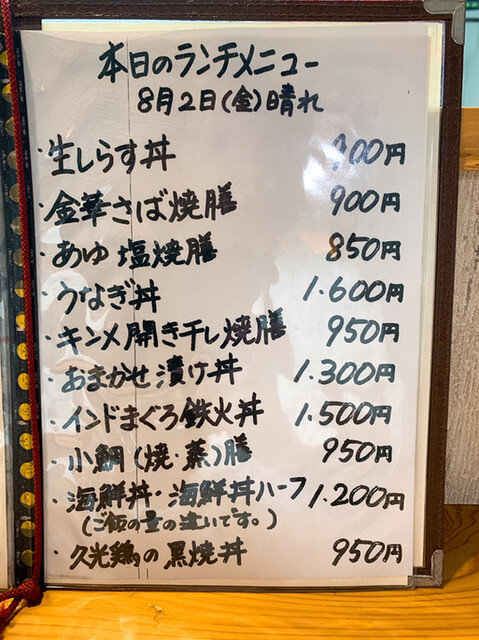 本日のランチメニュー
8月2日(金)晴れ
・生しらす丼 900円
・金華さば焼膳 900円
・あゆ塩焼膳 850円
・うなぎ丼 1.600円
・キンメ開き干し焼膳 950円
・おまかせ漬け丼 1.300円
・インドまぐろ鉄火丼 1.500円
・小鯛(焼・蒸)膳 950円
・海鮮丼・海鮮丼ハーフ 1.200円
(ご飯の量の違いです。)
・久光鶏の黒焼丼 950円